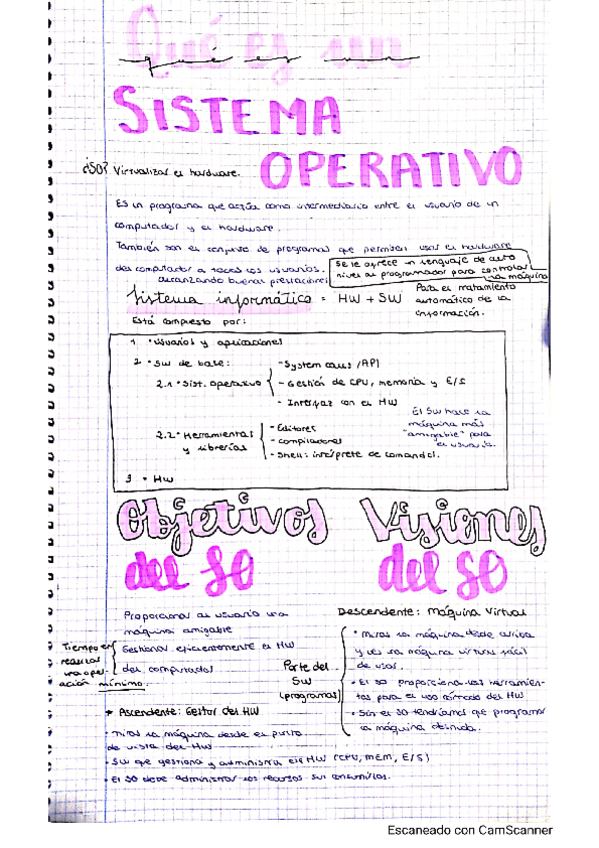 Qué es un
SISTEMA
OPERATIVO
¿SO? Virtualizar el hardware.
Es un programa que actúa como intermediario entre el usuario de un
computador y el hardware.
También son el conjunto de programas que permiten usar el hardware
del computador a todos los usuarios.
alcanzando buenas prestaciones
Se le ofrece un lenguaje de alto
nivel al programador para controlar
la máquina
Sistema informático = HW + SW
Para el tratamiento
automático de la
información.
Está compuesto por:
1 • Usuarios y aplicaciones
2 • SW de base:
2.1 • Sist. operativo
- System calls / API
- Gestión de CPU, memoria y E/S
- Interfaz con el HW
2.2 • Herramientas
y librerías
- Editores
- compiladores
- Shell: intérprete de comandos.
El SW hace la
máquina más
"amigable" para
el usuario.
3 • HW
Objetivos
del SO
Proporcionar al usuario una
máquina amigable
Gestionar eficientemente el HW
del computador
Tiempo en
realizar
una oper-
ación mínimo.
Visiones
del SO
Descendente: Máquina Virtual
Parte del
SW
(programas)
• Miras la máquina desde arriba
y ves la máquina virtual fácil
de usar.
• El SO proporciona las herramien-
tas para el uso cómodo del HW
• Sin el SO tendríamos que programar
la máquina desnuda.
Ascendente: Gestor del HW
• Miras la máquina desde el punto
de vista del HW
• SW que gestiona y administra el HW (CPU, mem, E/S)
• El SO debe administrar los recursos sin consumirlos.
Escaneado con CamScanner